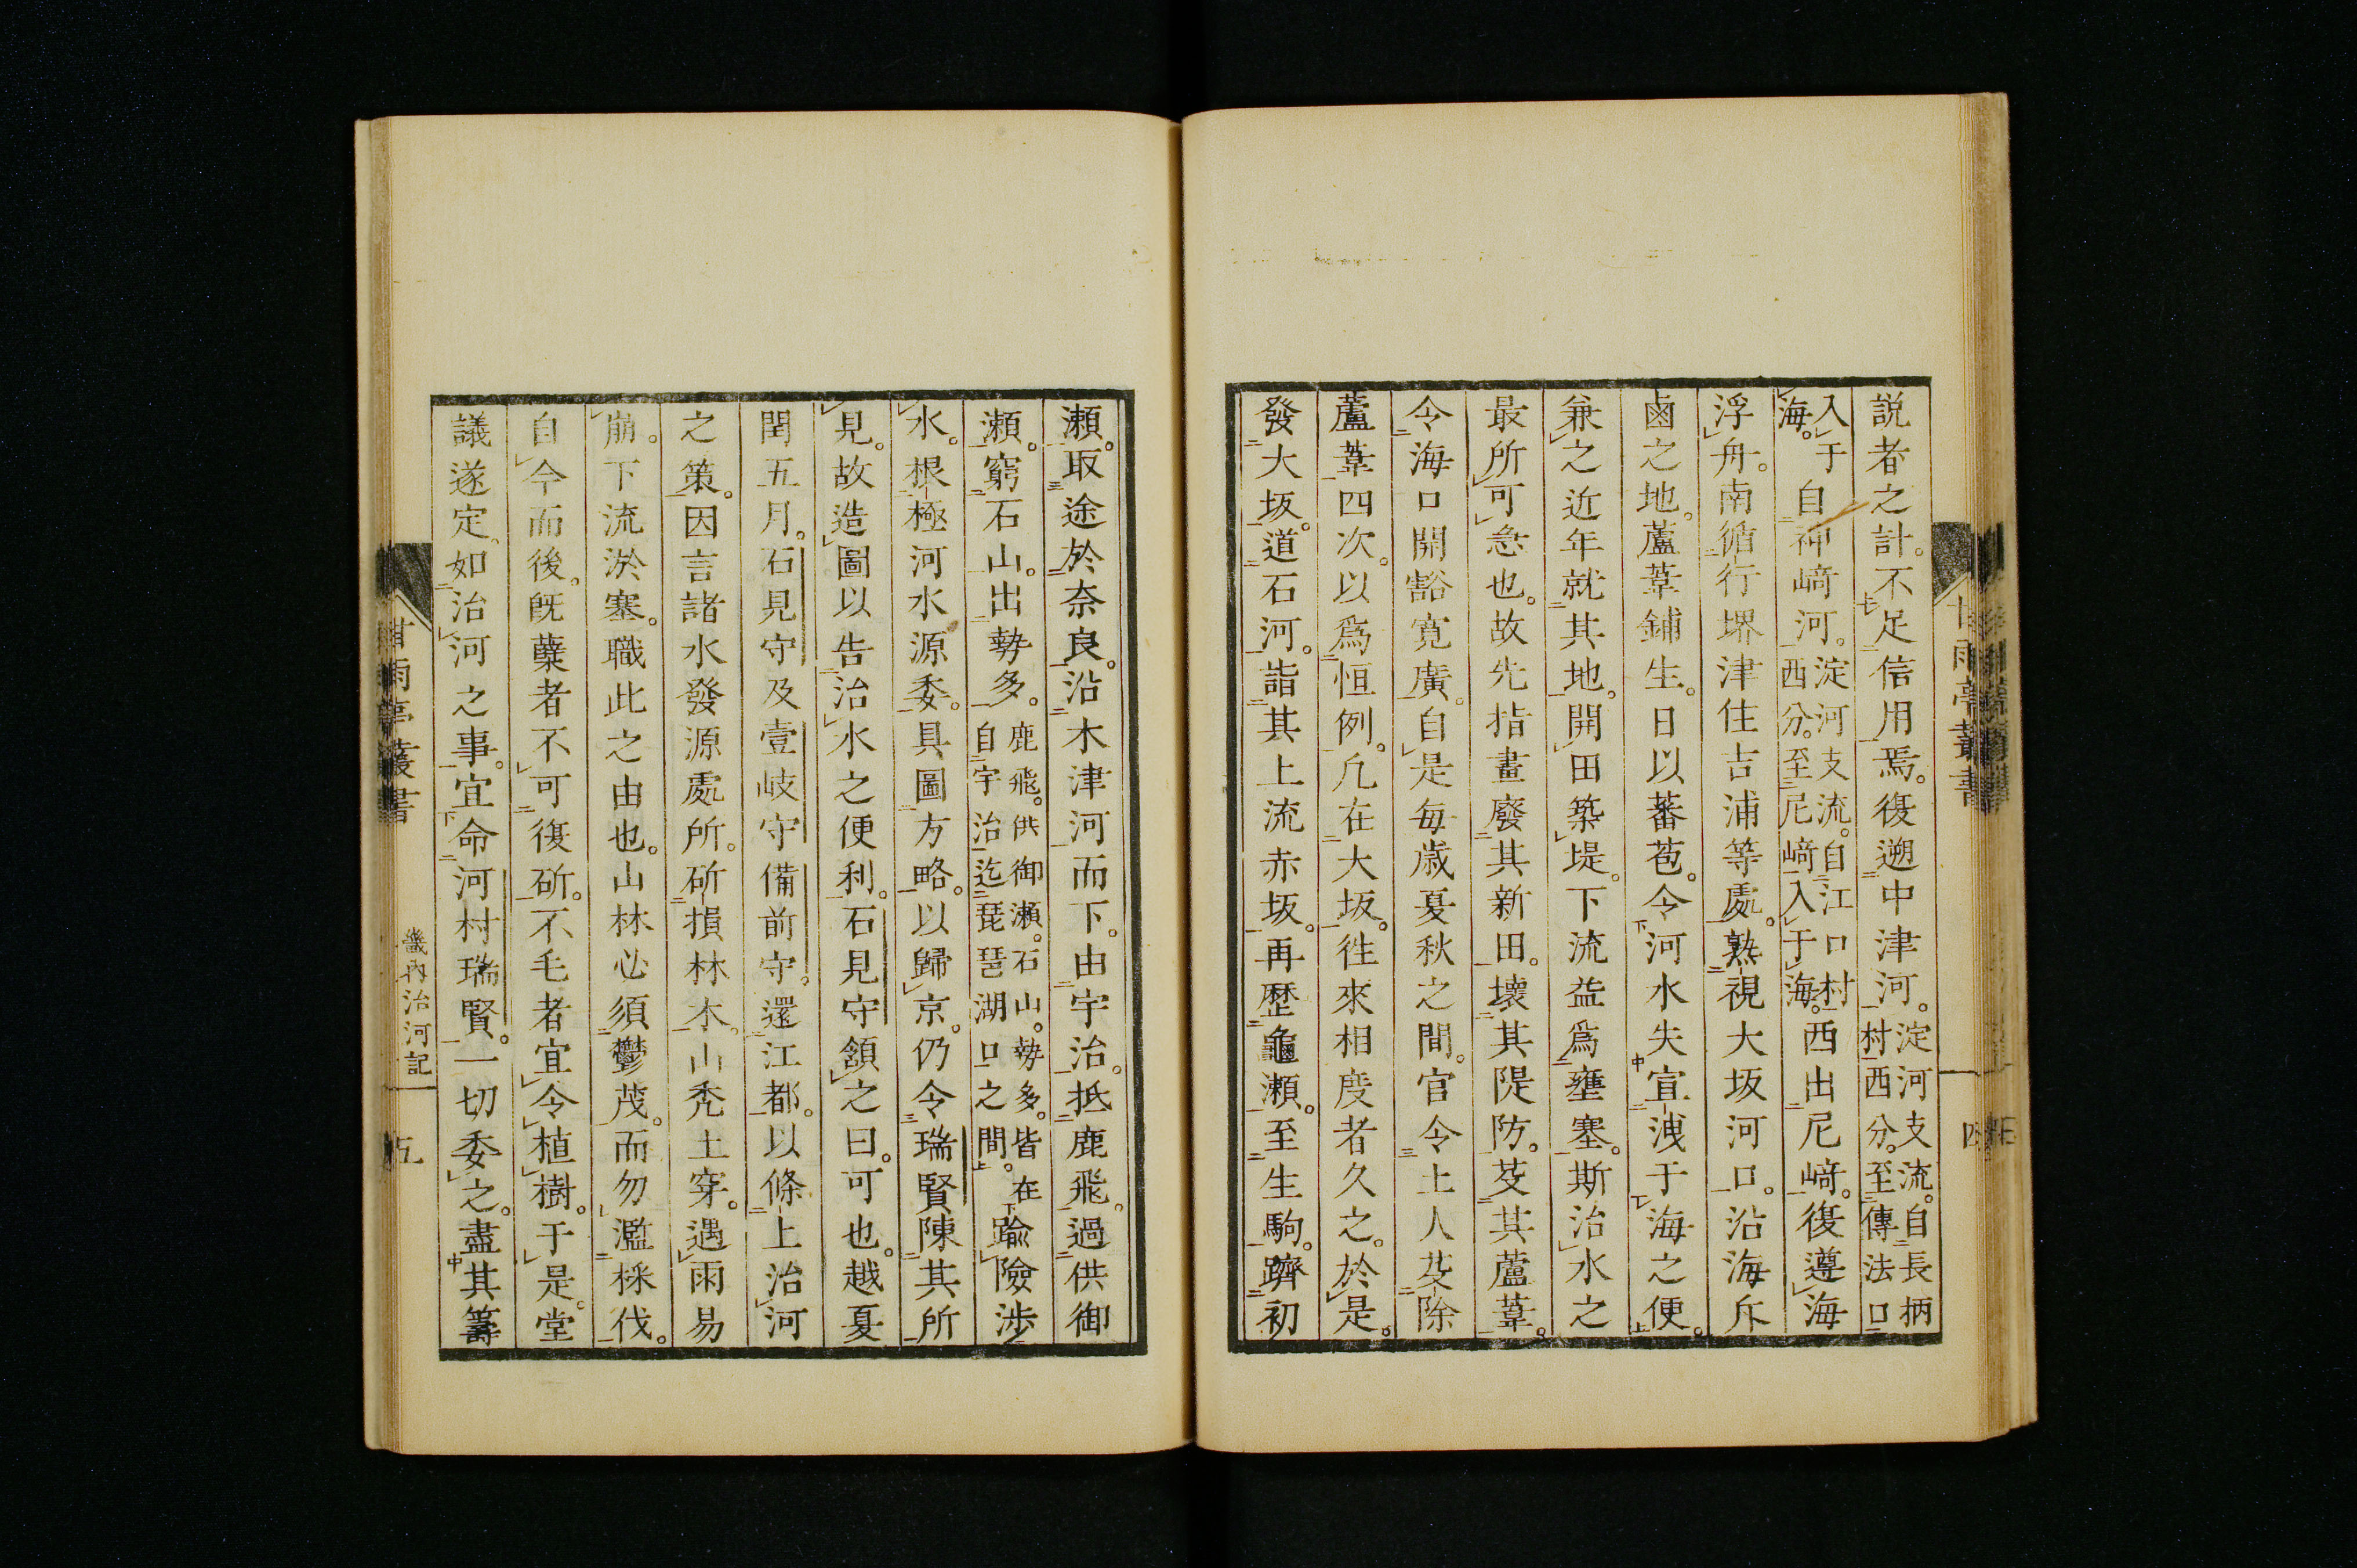 説者之計。不足信用焉。復遡中津河。淀河支流。自長柄村西分。至傳法口
入于海。自神﨑河。淀河支流。自江口村西分。至尼﨑入于海。西出尼﨑。復遵海
浮舟。南循行堺津住吉浦等處。熟視大坂河口。沿海斥
鹵之地。蘆葦鋪生。日以蕃苞。令河水失宣洩于海之便。
兼之近年就其地。開田築堤。下流益爲壅塞。斯治水之
最所可急也。故先指畫廢其新田。壞其隄防。芟其蘆葦。
令海口開豁寛廣。自是毎歳夏秋之間。官令土人芟除
蘆葦四次。以爲恒例。凢在大坂。徃來相度者久之。於是。
發大坂。道石河。詣其上流赤坂。再歴龜瀬。至生駒。躋初
瀬。取途於奈良。沿木津河而下。由宇治。抵鹿飛。過供御
瀬。窮石山。出勢多。鹿飛。供御瀬。石山。勢多。皆在自宇治迄琵琶湖口之間。踰險渉
水。根極河水源委。具圖方略。以歸京。仍令瑞賢陳其所
見。故造圖以告治水之便利。石見守頷之曰。可也。越夏
閏五月。石見守及壹岐守備前守。還江都。以條上治河
之策。因言諸水發源處所。斫損林木。山禿土穿。遇雨易
崩。下流淤塞。職此之由也。山林必須鬱茂。而勿濫採伐。
自今而後。既蘖者不可復斫。不毛者宜令植樹。于是。堂
議遂定。如治河之事。宜命河村瑞賢。一切委之。盡其籌
甘雨亭叢書
畿内治河記
五
甘雨亭叢書
四